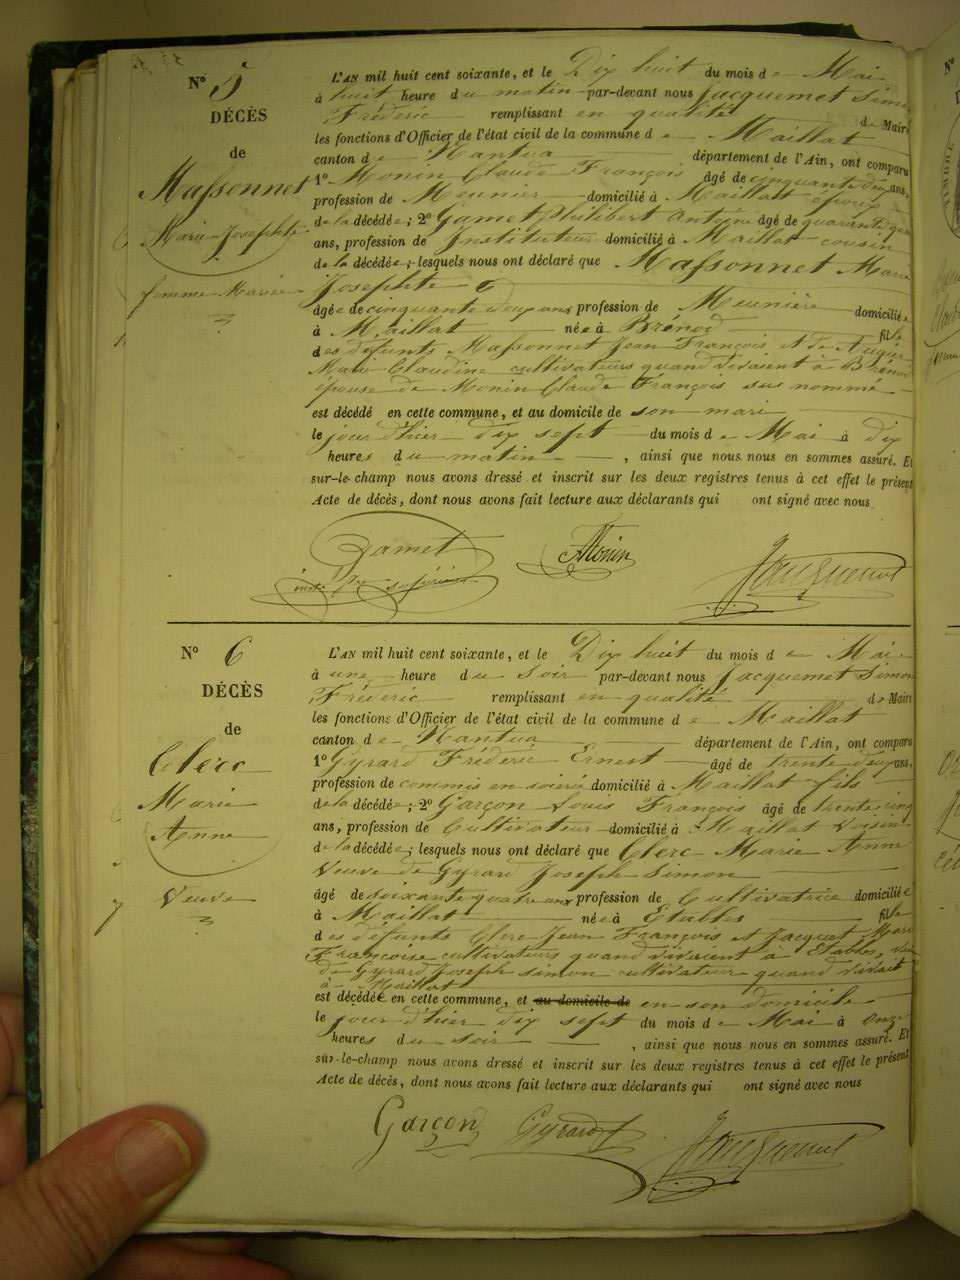 N° 5
DÉCÈS
de
Massonnet
Marie Josephte
femme Monin
L'AN mil huit cent soixante, et le Dix huit du mois de Mai
à huit heure du matin par-devant nous Jacquemet Simon
Fréderic remplissant en qualité de Maire
les fonctions d'Officier de l'état civil de la commune de Maillat
canton de Nantua département de l'Ain, ont comparu
1° Monin Claude François âgé de cinquante deux ans,
profession de Meunier domicilié à Maillat époux
de la décédée; 2° Gamet Philibert Antoine âgé de quarante
ans, profession de Instituteur domicilié à Maillat cousin
de la décédée; lesquels nous ont déclaré que Massonnet Marie
Josephte
âgée de cinquante deux ans profession de Meunière domiciliée
à Maillat née à Brénod fille
des défunts Massonnet Jean François et de
Marie Claudine cultivateurs quand vivaient à Brénod
épouse de Monin Claude François sus nommé
est décédé en cette commune, et au domicile de son mari
le jour d'hier dix sept du mois de Mai à dix
heures du matin, ainsi que nous nous en sommes assuré. Et
sur-le-champ nous avons dressé et inscrit sur les deux registres tenus à cet effet le présent
Acte de décès, dont nous avons fait lecture aux déclarants qui ont signé avec nous
Gamet
Monin
Jacquemet
N° 6
DÉCÈS
de
Clerc
Marie
Anne
Veuve
L'AN mil huit cent soixante, et le Dix huit du mois de Mai
à une heure du soir par-devant nous Jacquemet Simon
Fréderic remplissant en qualité de Maire
les fonctions d'Officier de l'état civil de la commune de Maillat
canton de Nantua département de l'Ain, ont comparu
1° Gyrard Fréderic Ernest âgé de trente deux ans,
profession de commis en soierie domicilié à Maillat fils
de la décédée; 2° Garçon Louis François âgé de trente cinq
ans, profession de Cultivateur domicilié à Maillat voisin
de la décédée; lesquels nous ont déclaré que Clerc Marie Anne
Veuve de Gyrard Joseph Simon
âgé de soixante quatre ans profession de Cultivatrice domiciliée
à Maillat née à Etables fille
des défunts Clerc Jean François et Jacquet Marie
Françoise cultivateurs quand vivaient à Etables, veuve
de Gyrard Joseph Simon cultivateur quand vivait
à Maillat
est décédée en cette commune, et au domicile de en son domicile
le jour d'hier dix sept du mois de Mai à Onze
heures du soir, ainsi que nous nous en sommes assuré. Et
sur-le-champ nous avons dressé et inscrit sur les deux registres tenus à cet effet le présent
Acte de décès, dont nous avons fait lecture aux déclarants qui ont signé avec nous
Garçon
Gyrard
Jacquemet